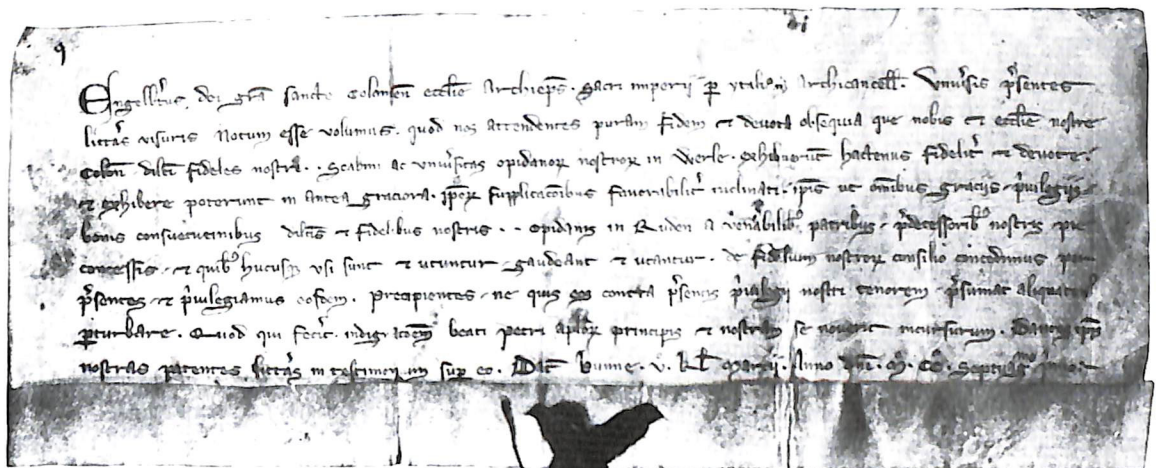 Engelb'tus dei gra sancte Colonien eccl'ie Archieps. Sacri imperii p ytaliam Archicancell. Vniu'sis p'sentes
litt'as visuris Notum esse volumus. quod nos attendentes puram fidem et deuota obsequia que nobis et eccl'ie nostre
Colon dil'ti fideles nostri. Scabini ac vniu'sitas opidanor nostror in Werle. exhibuerut hactenus fidelit' et deuote.
et exhibere poterunt in antea graciora. ipor supplicacoibus fauorabilit' inclinati. ipis ut omibus graciis p'uilegiis
bonis consuetudinibus dil'tis et fidelibus nostris opidanis in Ruden a ven'abilib' patribus p'decessorib' nostris pie
concessis et quib' hucusq vsi sunt et vtuntur gaudeant et vtantur. de fidelium nostror consilio concedimus per
p'sentes et p'uilegiamus eosdem. Precipientes ne quis eos contra p'sentis p'uilegii nostri tenorem p'sumat aliquaten'
p'turbare. Quod qui fec'it indignacoem beati petri aplor principis et nostram se nouerit incursurum. Dantes ipis
nostras patentes litt'as in testimonium sup eo. Dat bunne. v. kl Marcii. Anno dni. M. CC. Septuag'